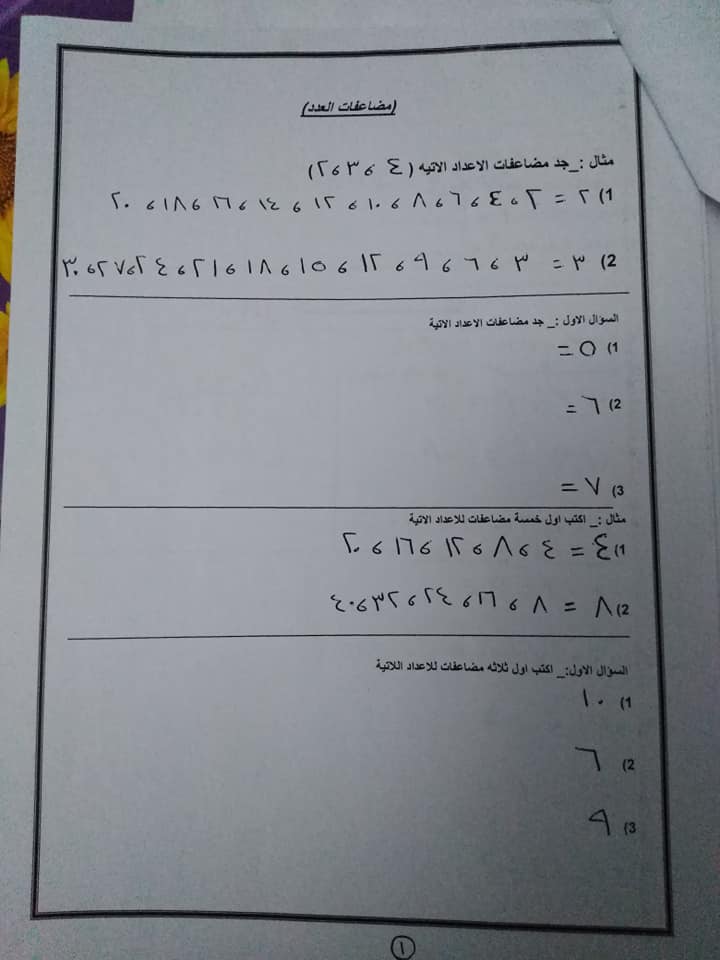 (مضاعفات العدد)
مثال :_ جد مضاعفات الاعداد الاتيه ( ٤ ، ٣ ، ٢ )
1) ٢ = ٢ ، ٤ ، ٦ ، ٨ ، ١٠ ، ١٢ ، ١٤ ، ١٦ ، ١٨ ، ٢٠
2) ٣ = ٣ ، ٦ ، ٩ ، ١٢ ، ١٥ ، ١٨ ، ٢١ ، ٢٤ ، ٢٧ ، ٣٠
السؤال الاول :_ جد مضاعفات الاعداد الاتية
1) ٥ =
2) ٦ =
3) ٧ =
مثال :_ اكتب اول خمسة مضاعفات للاعداد الاتية
1) ٤ = ٤ ، ٨ ، ١٢ ، ١٦ ، ٢٠
2) ٨ = ٨ ، ١٦ ، ٢٤ ، ٣٢ ، ٤٠
السؤال الاول:_ اكتب اول ثلاثه مضاعفات للاعداد اللاتية
1) ١٠
2) ٦
3) ٩
١